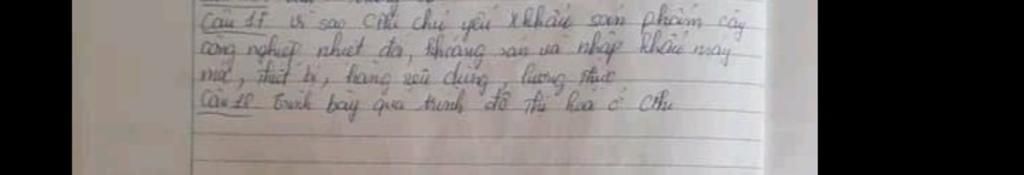 Câu 17 Vì sao CPhi chủ yếu xkhẩu sản phẩm cây
công nghiệp nhiệt đới, khoáng sản và nhập khẩu máy
móc, thiết bị, hàng tiêu dùng, lương thực
Câu 18 Trình bày quá trình đô thị hoá ở CPhi